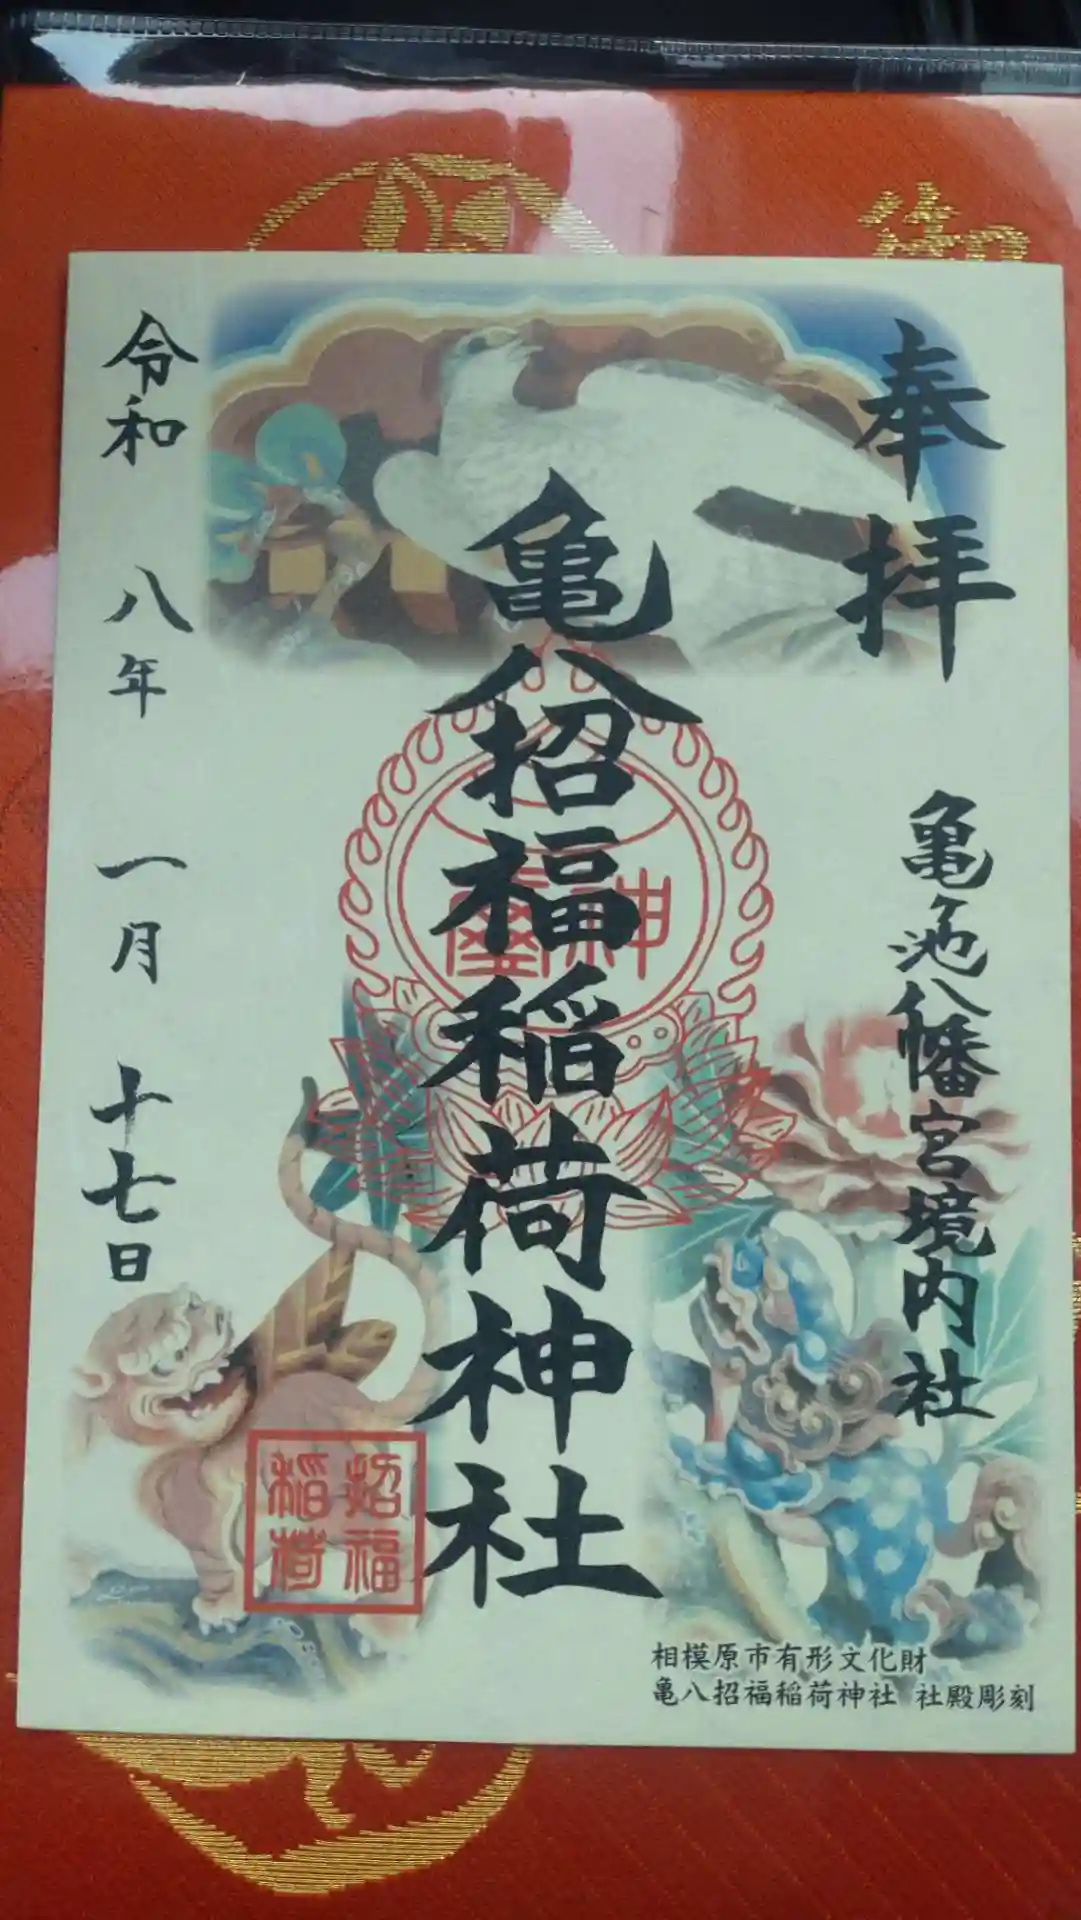 御
奉拝
亀ヶ池八幡宮境内社
亀八招福稲荷神社
神璽
招福
稲荷
令和 八年 一月 十七日
相模原市有形文化財
亀八招福稲荷神社 社殿彫刻